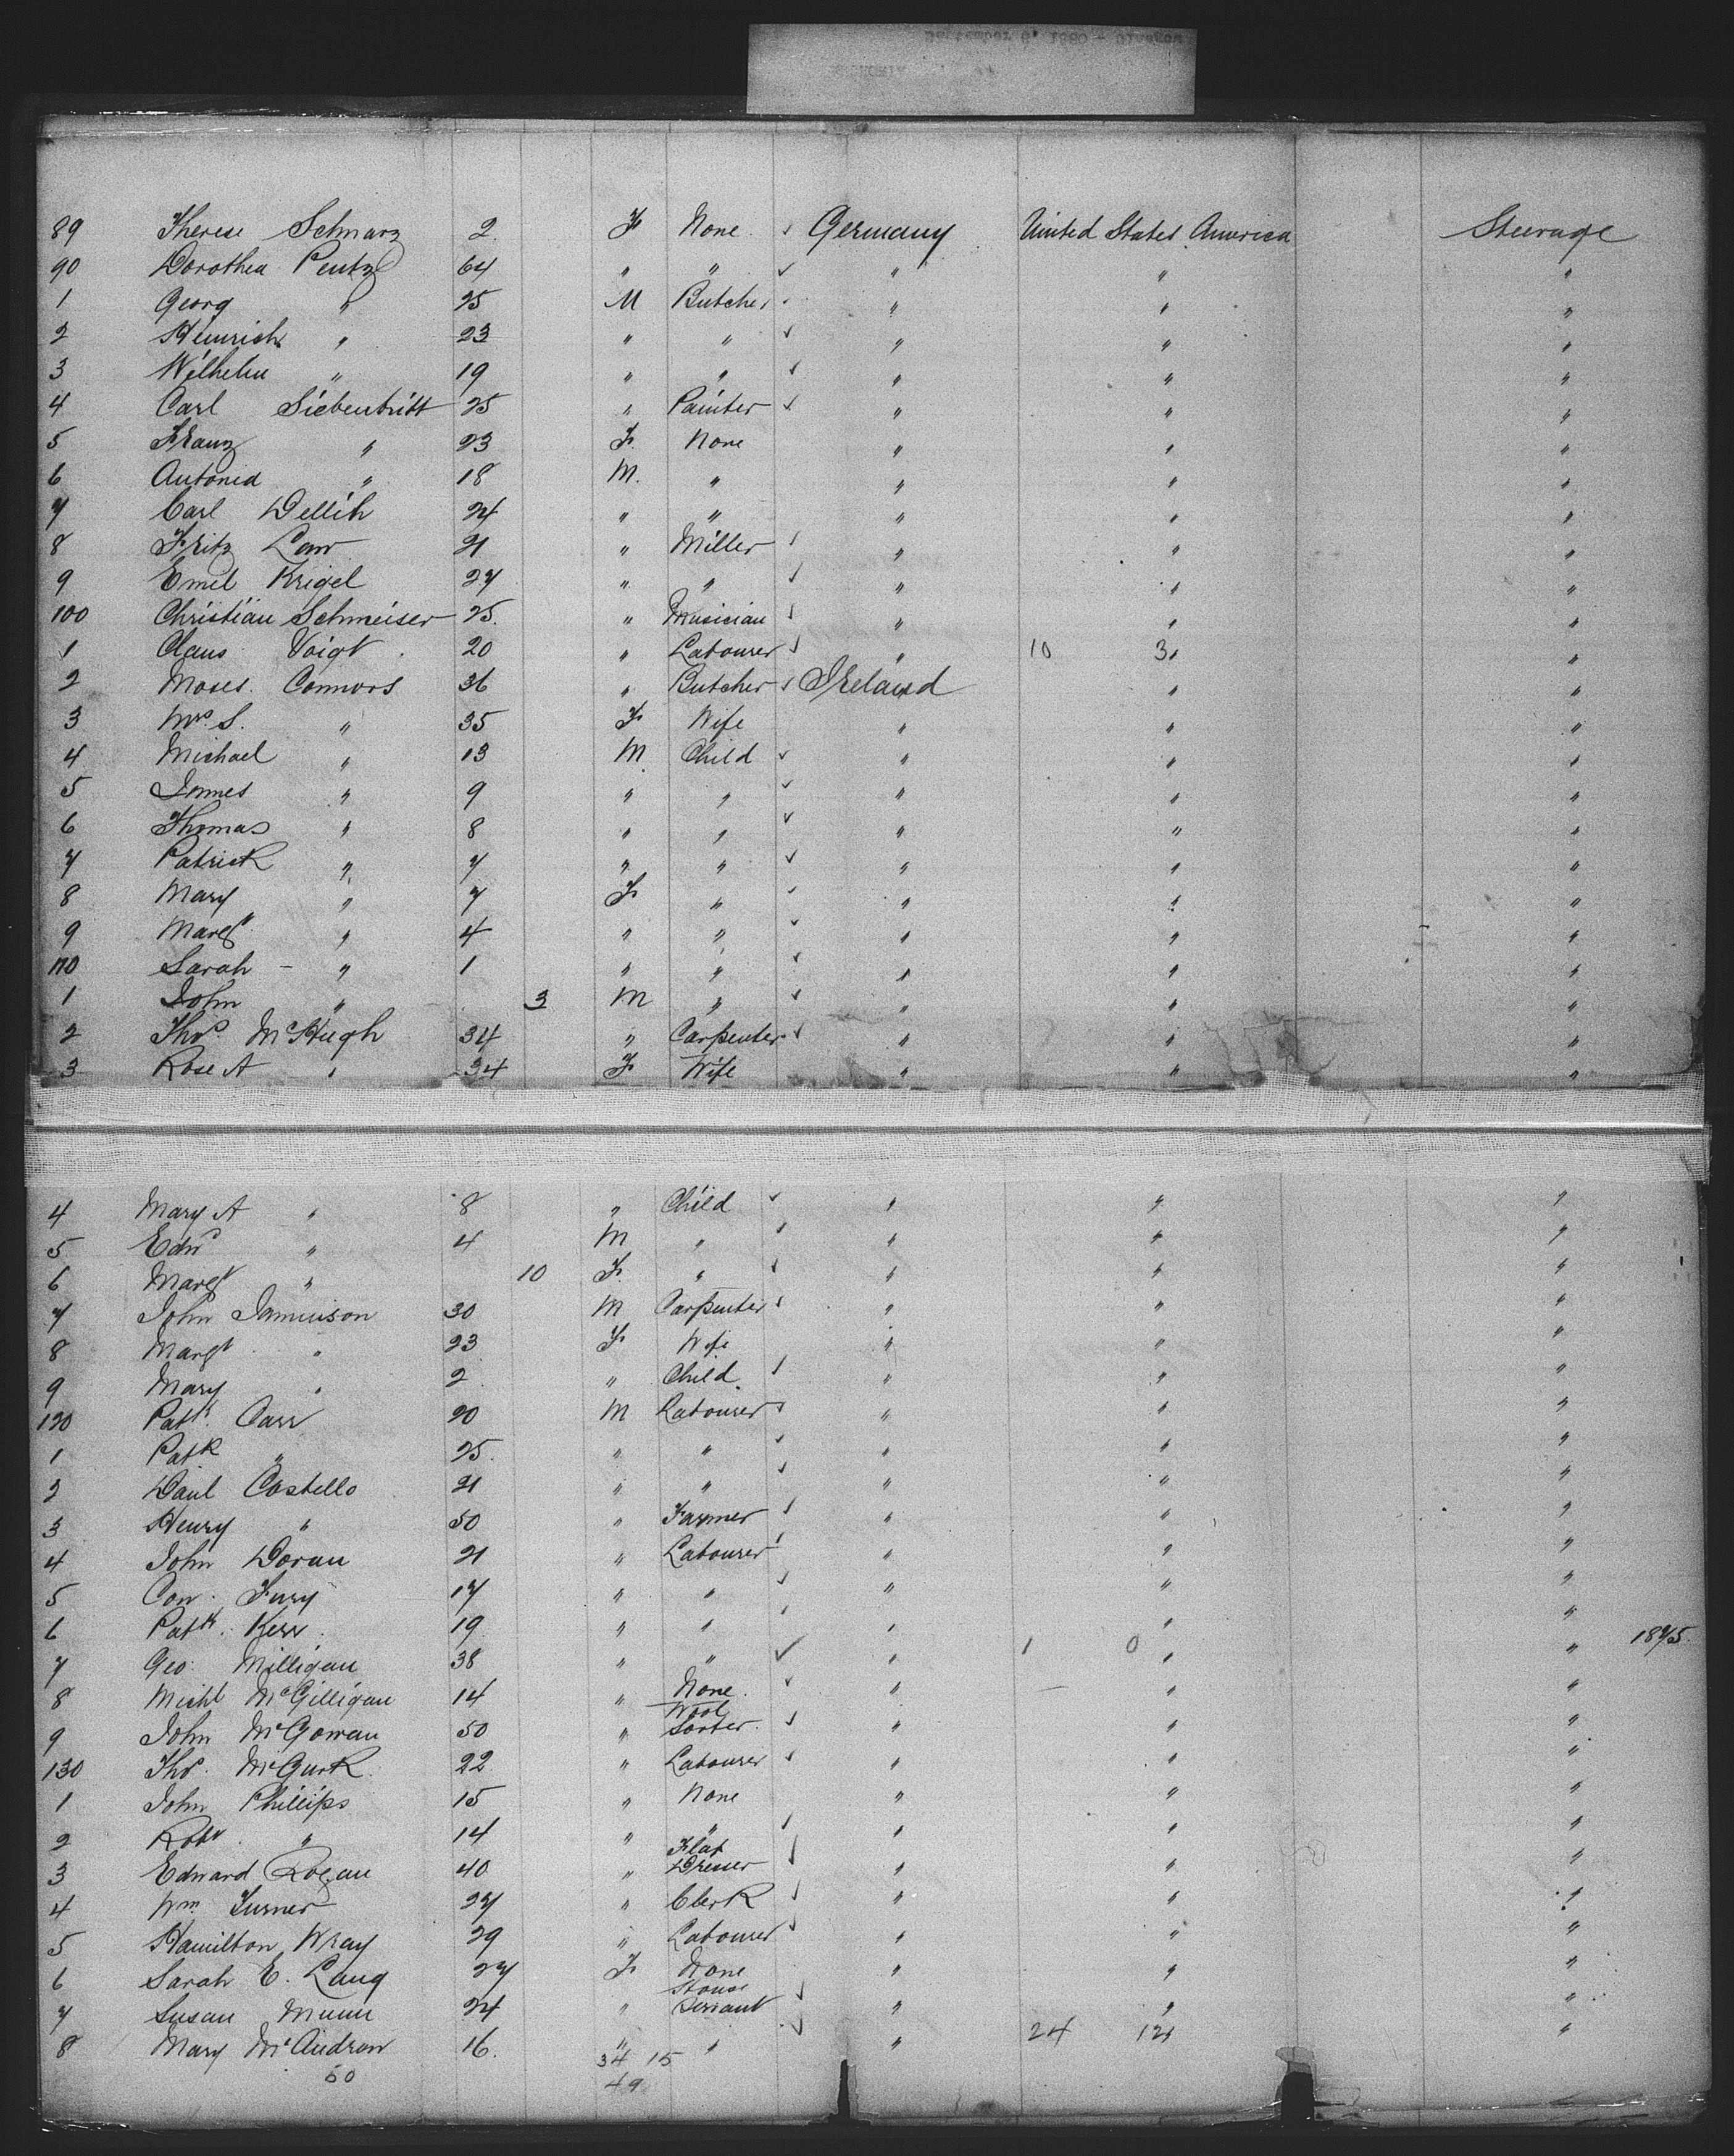 89 Therese Schwarz 2 F None ✓ Germany United States America Steerage
90 Dorothea Pentz 64 " " ✓ " " "
1 Georg " 25 M Butcher " " "
2 Heinrich " 23 " " ✓ " " "
3 Wilhelm " 19 " " ✓ " " "
4 Carl Siebentritt 25 " Painter ✓ " " "
5 Franz " 23 F None " " "
6 Antonia " 18 M. " " " "
7 Carl Dellith 24 " " " " "
8 Fritz Law 21 " Miller ✓ " " "
9 Emil Krigel 27 " " ✓ " " "
100 Christian Schmeiser 25. " Musician ✓ " " "
1 Claus Voigt 20 " Labourer ✓ " 10 3 " "
2 Moses Connors 36 " Butcher ✓ Ireland " "
3 Mrs S. " 35 F Wife " " "
4 Michael " 13 M Child ✓ " " "
5 James " 9 " " ✓ " " "
6 Thomas " 8 " " ✓ " " "
7 Patrick " 7 " " ✓ " " "
8 Mary " 7 F " ✓ " " "
9 Margt " 4 " " ✓ " " "
110 Sarah - " 1 " " ✓ " " "
1 John " 3 M " ✓ " " "
2 Thos McHugh 34 " Carpenter ✓ " " "
3 Rose A " 34 F Wife " " "
4 Mary A " 8 " Child ✓ " " "
5 Edwd " 4 M " ✓ " " "
6 Margt " 10 F. " ✓ " " "
7 John Jamieson 30 M Carpenter ✓ " " "
8 Margt " 23 F Wife " " "
9 Mary " 2 " Child ✓ " " "
120 Patk Carr 20 M Labourer ✓ " " "
1 Patk " 25. " " ✓ " " "
2 Danl Costello 21 " " ✓ " " "
3 Henry " 50 " Farmer ✓ " " "
4 John Doran 21 " Labourer ✓ " " "
5 Con. Fury 17 " " ✓ " " "
6 Patk. Kerr 19 " " ✓ " " "
7 Geo: Milligan 38 " " ✓ " 1 0 " " 1875.
8 Michl McGilligan 14 " None. ✓ " " "
9 John McGowan 50 " Wool Sorter. ✓ " " "
130 Thos. McGurk 22 " Labourer ✓ " " "
1 John Phillips 15 " None " " "
2 Robt. " 14 " " ✓ " " "
3 Edward Rogan 40 " Flax Dresser ✓ " " "
4 Wm. Turner 27 " Clerk ✓ " " "
5 Hamilton Wray 29 " Labourer ✓ " " "
6 Sarah E. Lang 27 F None " " "
7 Susan Munn 24 " House Servant ✓ " " "
8 Mary McAndrew 16. " " ✓ " 24 12 " "
50 34 15
49